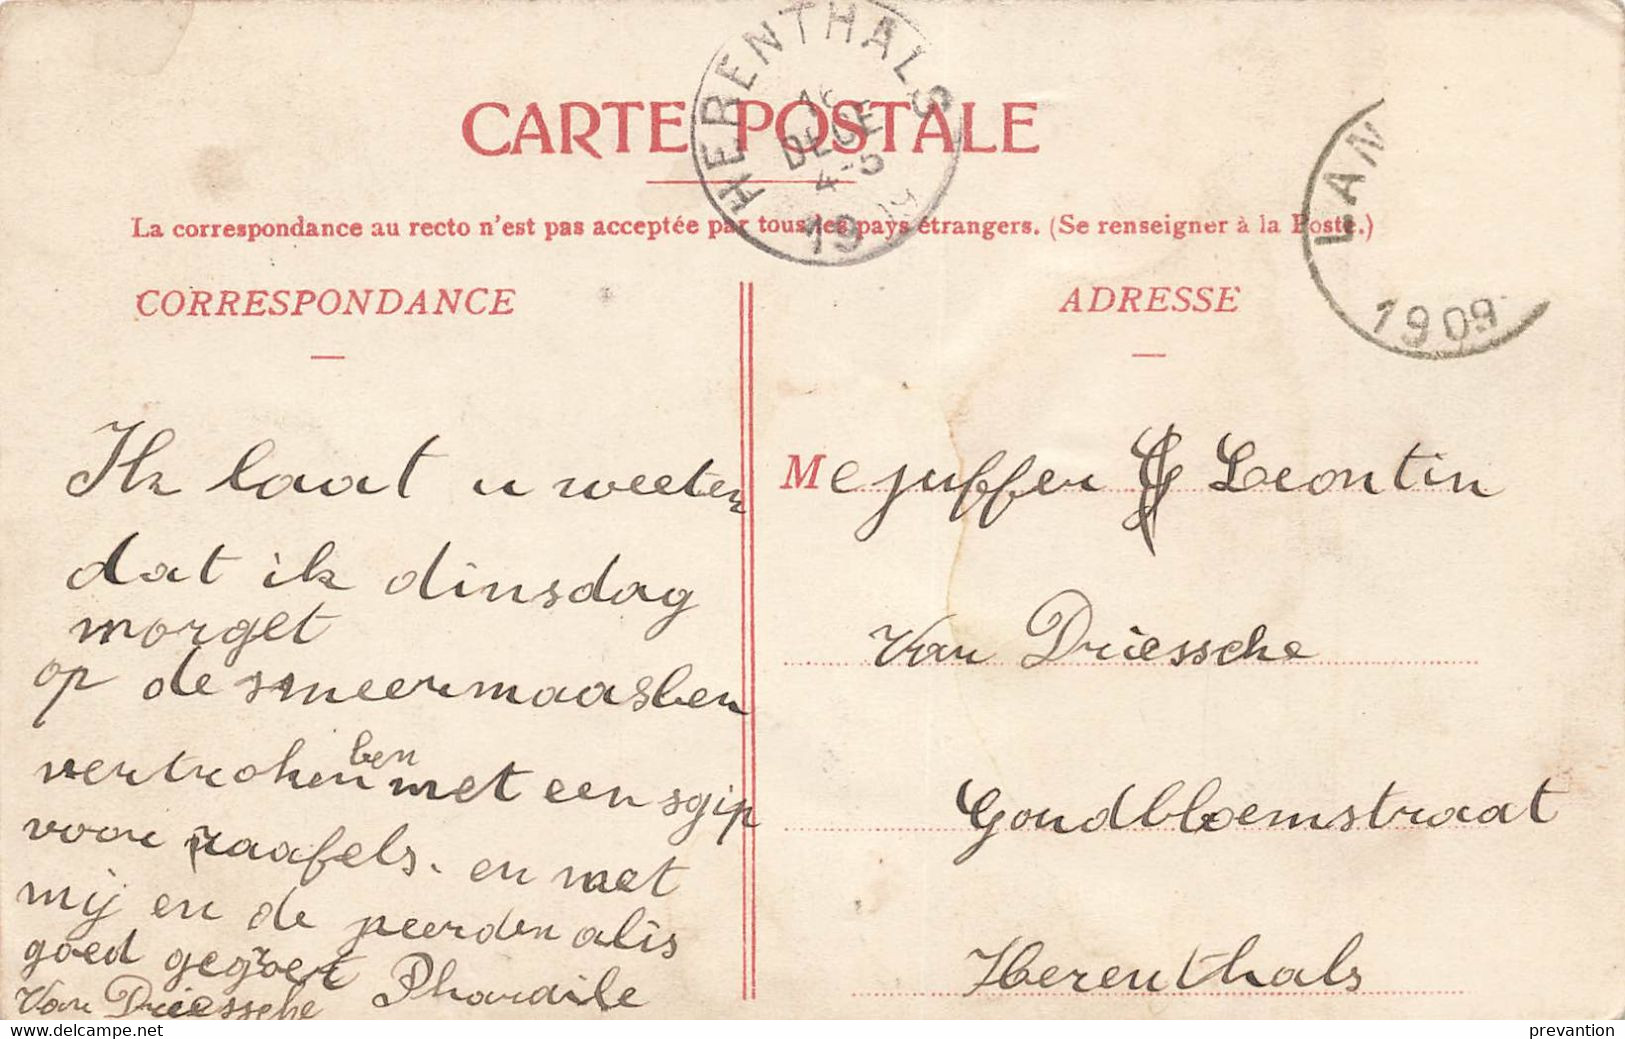 HERENTHALS
DECE
4-5
19 09
CARTE POSTALE
La correspondance au recto n'est pas acceptée par tous les pays étrangers. (Se renseigner à la Poste.)
LAN
1909
CORRESPONDANCE
Ik laat u weeten
dat ik dinsdag
morget
op de smeermaasben
vertroken ben met een sgip
voor raafels. en met
mij en de peerden alis
goed gegroet
Van Driessche
ADRESSE
Mejuffer Leontin
Van Driessche
Goudbloemstraat
Herenthals
www.delcampe.net
prevantion